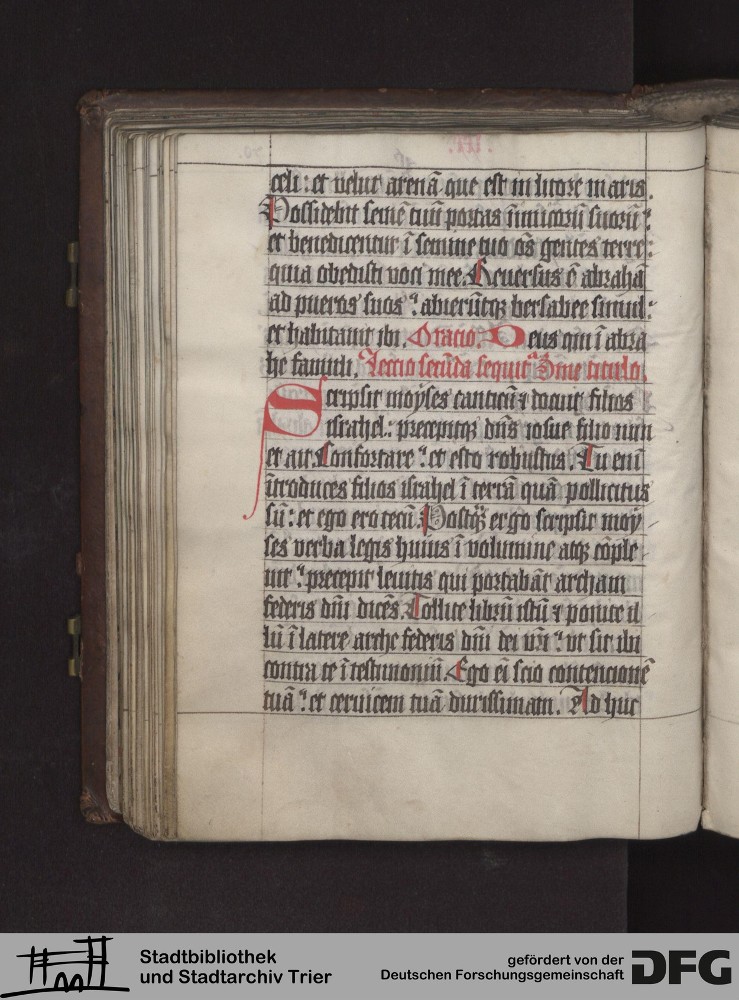 celi : et velut arenā que est in litore maris.
Possidebit semē tuū portas inimicorū suorū :
et benedicentur ī semine tuo oēs gentes terre :
quia obedisti voci mee. Reversus ē abrahā
ad pueros suos : abierūtqꝫ bersabee simul :
et habitavit ibi. Oracio. Deus qui ī abra
he famuli. Leccio secūda sequit̄ sine titulo.
Scripsit moyses canticū ⁊ docuit filios
israhel : precepitqꝫ dn̄s iosue filio nun
et ait. Confortare : et esto robustus. Tu eni
ītroduces filios israhel ī terrā quā pollicitus
sū : et ego ero tecū. Postqꝫ ergo scripsit moy
ses verba legis huius ī volumine atqꝫ cōple
vit : precepit levitis qui portabāt archam
federis dn̄i dicēs. Tollite librū istū ⁊ ponite il
lū ī latere arche federis dn̄i dei vr̄i : vt sit ibi
contra te ī testimoniū. Ego ei scio contencionē
tuā : et cervicem tuā durissimam. Ad huc
Stadtbibliothek
und Stadtarchiv Trier
gefördert von der
Deutschen Forschungsgemeinschaft
DFG